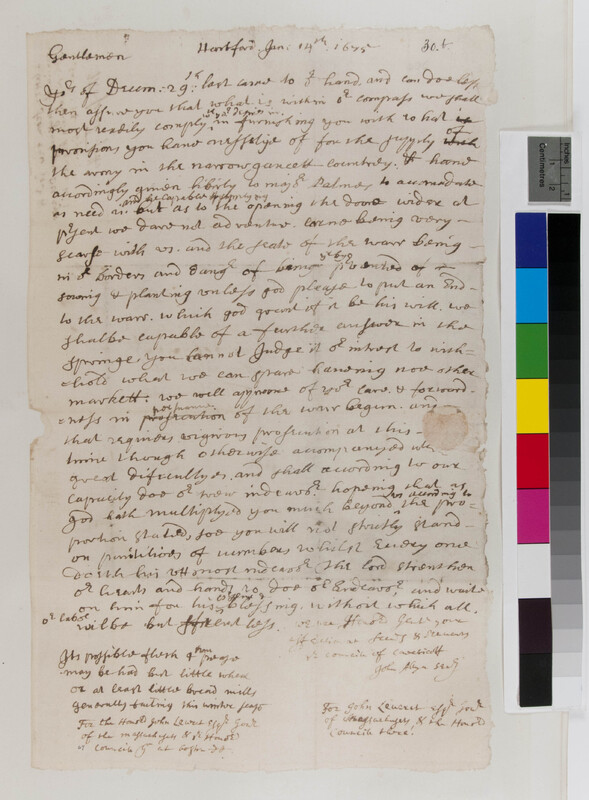 Gentlemen Hartford Jan: 14th 1675 30.b
Yors of Decem: 29th last came to or hand, and can doe less
then assure you that what is within or compass we shall
most readily comply yor desires in furnishing you with what
provisions you have of for the supply of
the army in the narrowgancett Countrey. & have
accordingly given liberty to majr Palmes to accomodate
as need is. but as to the opening the dore wider at
prsent we dare not adventure. Corne being very
scarse with vs. and the seate of the warr being
in or Borders and dangr of being prvented of
sowing & planting vnless god please to put an End
to the warr. which god grant if it be his will. we
shalbe capable of a further answer in the
Springe. you Cannot Judge it or intrest to with=
=hold what we can spare haveing noe other
markett. we well approve of yor care & forward=
=ness in prosecution of the warr begun. and
that requires vigorous prosecution at this
time though otherwise accompanyed
great difficultyes. and shall according to our
capacity doe or indeavor. hopeing that as
god hath multiplyed you much beyond vs according to the pro=
portion stated, soe you will not strictly stand
on of numbers whilst Every one
doth his vttmost indeavor. The lord strenthen
or hearts and hands to doe or Endeavor, and waite
on him for his blessing. without which all
or Labor wilbe but less.
Gent your
& Servants
councill of Connecticott
John Allyn Secry
Its possible a
may be had but little wheat
or at least little bread mills
generally faileing this winter
For the Honrd John Leveret Esqr Govr
of the massachusets & the Honrd
Councill at Boston
For John Leveret Esqr Govr
of Massachusets & the Honrd
Councill there.
Centimetres
Inches
1
2